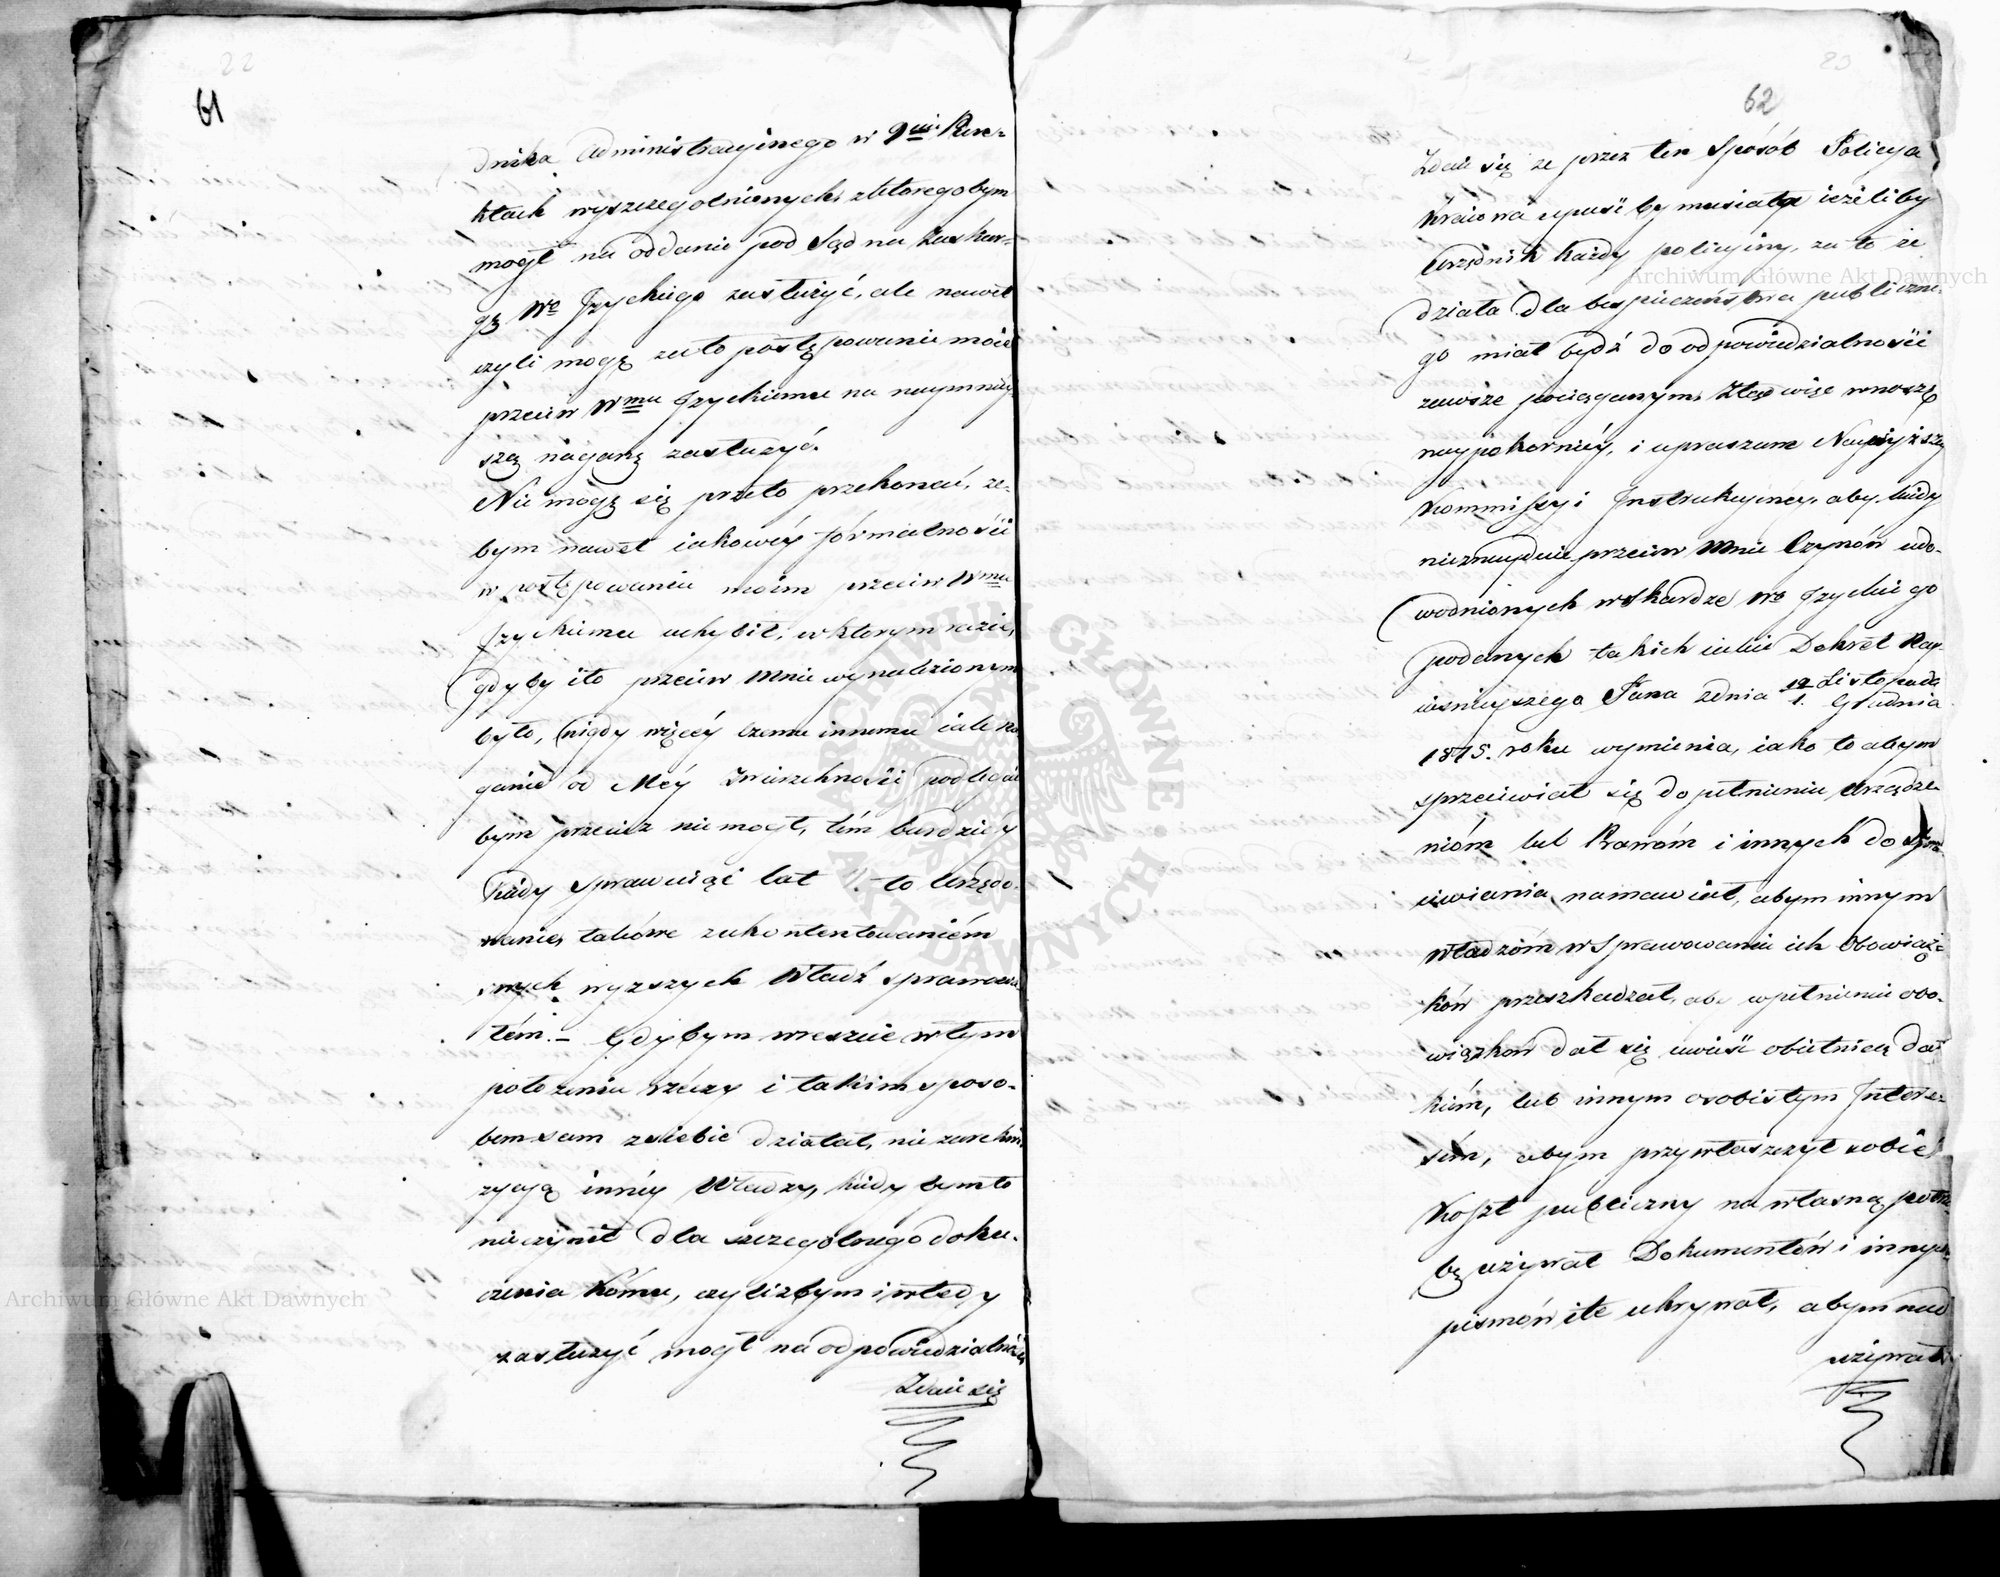 22
61
dnika Administracyinego w 9ciu Pun=
ktach wyszczegolnionych, z ktoregobym
mogł na oddanie pod Sąd na zaskar=
gę Wo Jzyckiego zasłużyć, ale nawet
czyli mogę za to postępowanie moie
przeciw Wmu Jzyckiemu na naymniey=
szą naganę zasłuzyć.
Nie mogę się przeto przekonać, ze=
bym nawet iakowéy formalności
w postępowaniu moim przeciw Wmu
Jzyckiemu uchybił, w ktorym razie,
gdyby i to przeciw mnie wynalezionym
było, nigdy więcéy czemu innemu iak na
ganie od Méy Zwierzchności podlegać
bym przeciez nie mogł, tém bardziéy
kiedy sprawuiąc lat 11. to Urzędo=
wanie, takowe z ukontentowaniém
swych wyzszych Władz sprawowa
łém. – Gdybym wreszcie w tym
położeniu rzéczy i takim sposo=
bem sam z siebie działał, nie zarekwi
zycyą innéy Władzy, kiedybym to
nie czynił dla szczegolnego doku=
czenia komu, czylizbym i wtedy
zasłuzyć mogł na odpowiedzialność,
Zdaie się
23
62
Zdaie się ze przez ten Sposób Policya
Kraiowa upaść by musiała ieżeliby
Urzędnik każdy policyiny, za to że
działa dla bespieczeństwa publiczne=
go miał bydź do odpowiedzialności
zawsze pociąganym, Ztąd więc wnoszę
naypokorniéy, i upraszam Naywyższey
Kommissyi Instrukcyiney, aby kiedy
nieznayduie przeciw mnie Czynów udo=
wodnionych w skardze Wo Jzyckiego
podanych takich iakie Dekret Nay=
iaśnieyszego Pana z dnia 19/1. Listopada/Grudnia
1815. roku wymienia, iako to abym
sprzeciwiał się dopełnieniu Urządze=
nióm lub Prawóm i innych do sprze
ciwiania namawiał, abym innym
Władzóm w Sprawowaniu ich Obowiąz=
ków przeszkadzał, abym w pełnieniu obo=
wiązków dał się uwieść obietnicą dat
kiem, lub innym osobistym Interes=
sém, abym przywłaszczył sobie
Koszt publiczny na własną potrze
bę używał Dokumentów i innych
pismów ile ukrywał, abym nad
używał
Archiwum Główne Akt Dawnych
Archiwum Główne Akt Dawnych
ARCHIWUM GŁÓWNE AKT DAWNYCH